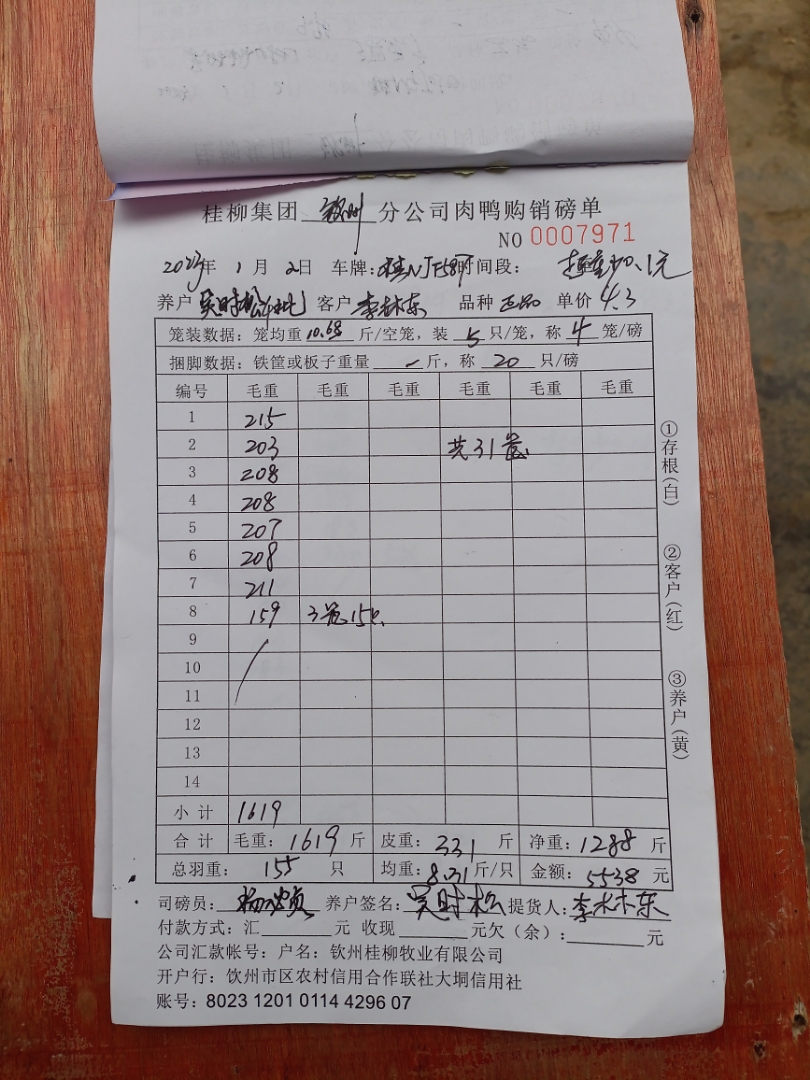 桂柳集团 钦州 分公司肉鸭购销磅单
NO 0007971
2023年 1 月 2日 车牌: 时间段:
养户 吴时松 客户 李林东 品种 正品 单价 4.3
笼装数据: 笼均重 10.68 斤/空笼, 装 5 只/笼, 称 4 笼/磅
捆脚数据: 铁筐或板子重量 斤, 称 20 只/磅
编号 毛重 毛重 毛重 毛重 毛重 毛重
1 215
2 203 共31笼
3 208
4 208
5 207
6 208
7 211
8 159 3笼15只
9
10
11
12
13
14
小计 1619
合计 毛重: 1619 斤 皮重: 331 斤 净重: 1288 斤
总羽重: 155 只 均重: 8.31 斤/只 金额: 5538 元
司磅员: 养户签名: 吴时松 提货人: 李林东
付款方式: 汇 元 收现 元欠(余): 元
公司汇款帐号: 户名: 钦州桂柳牧业有限公司
开户行: 钦州市区农村信用合作联社大垌信用社
账号: 8023 1201 0114 4296 07
①存根(白)
②客户(红)
③养户(黄)